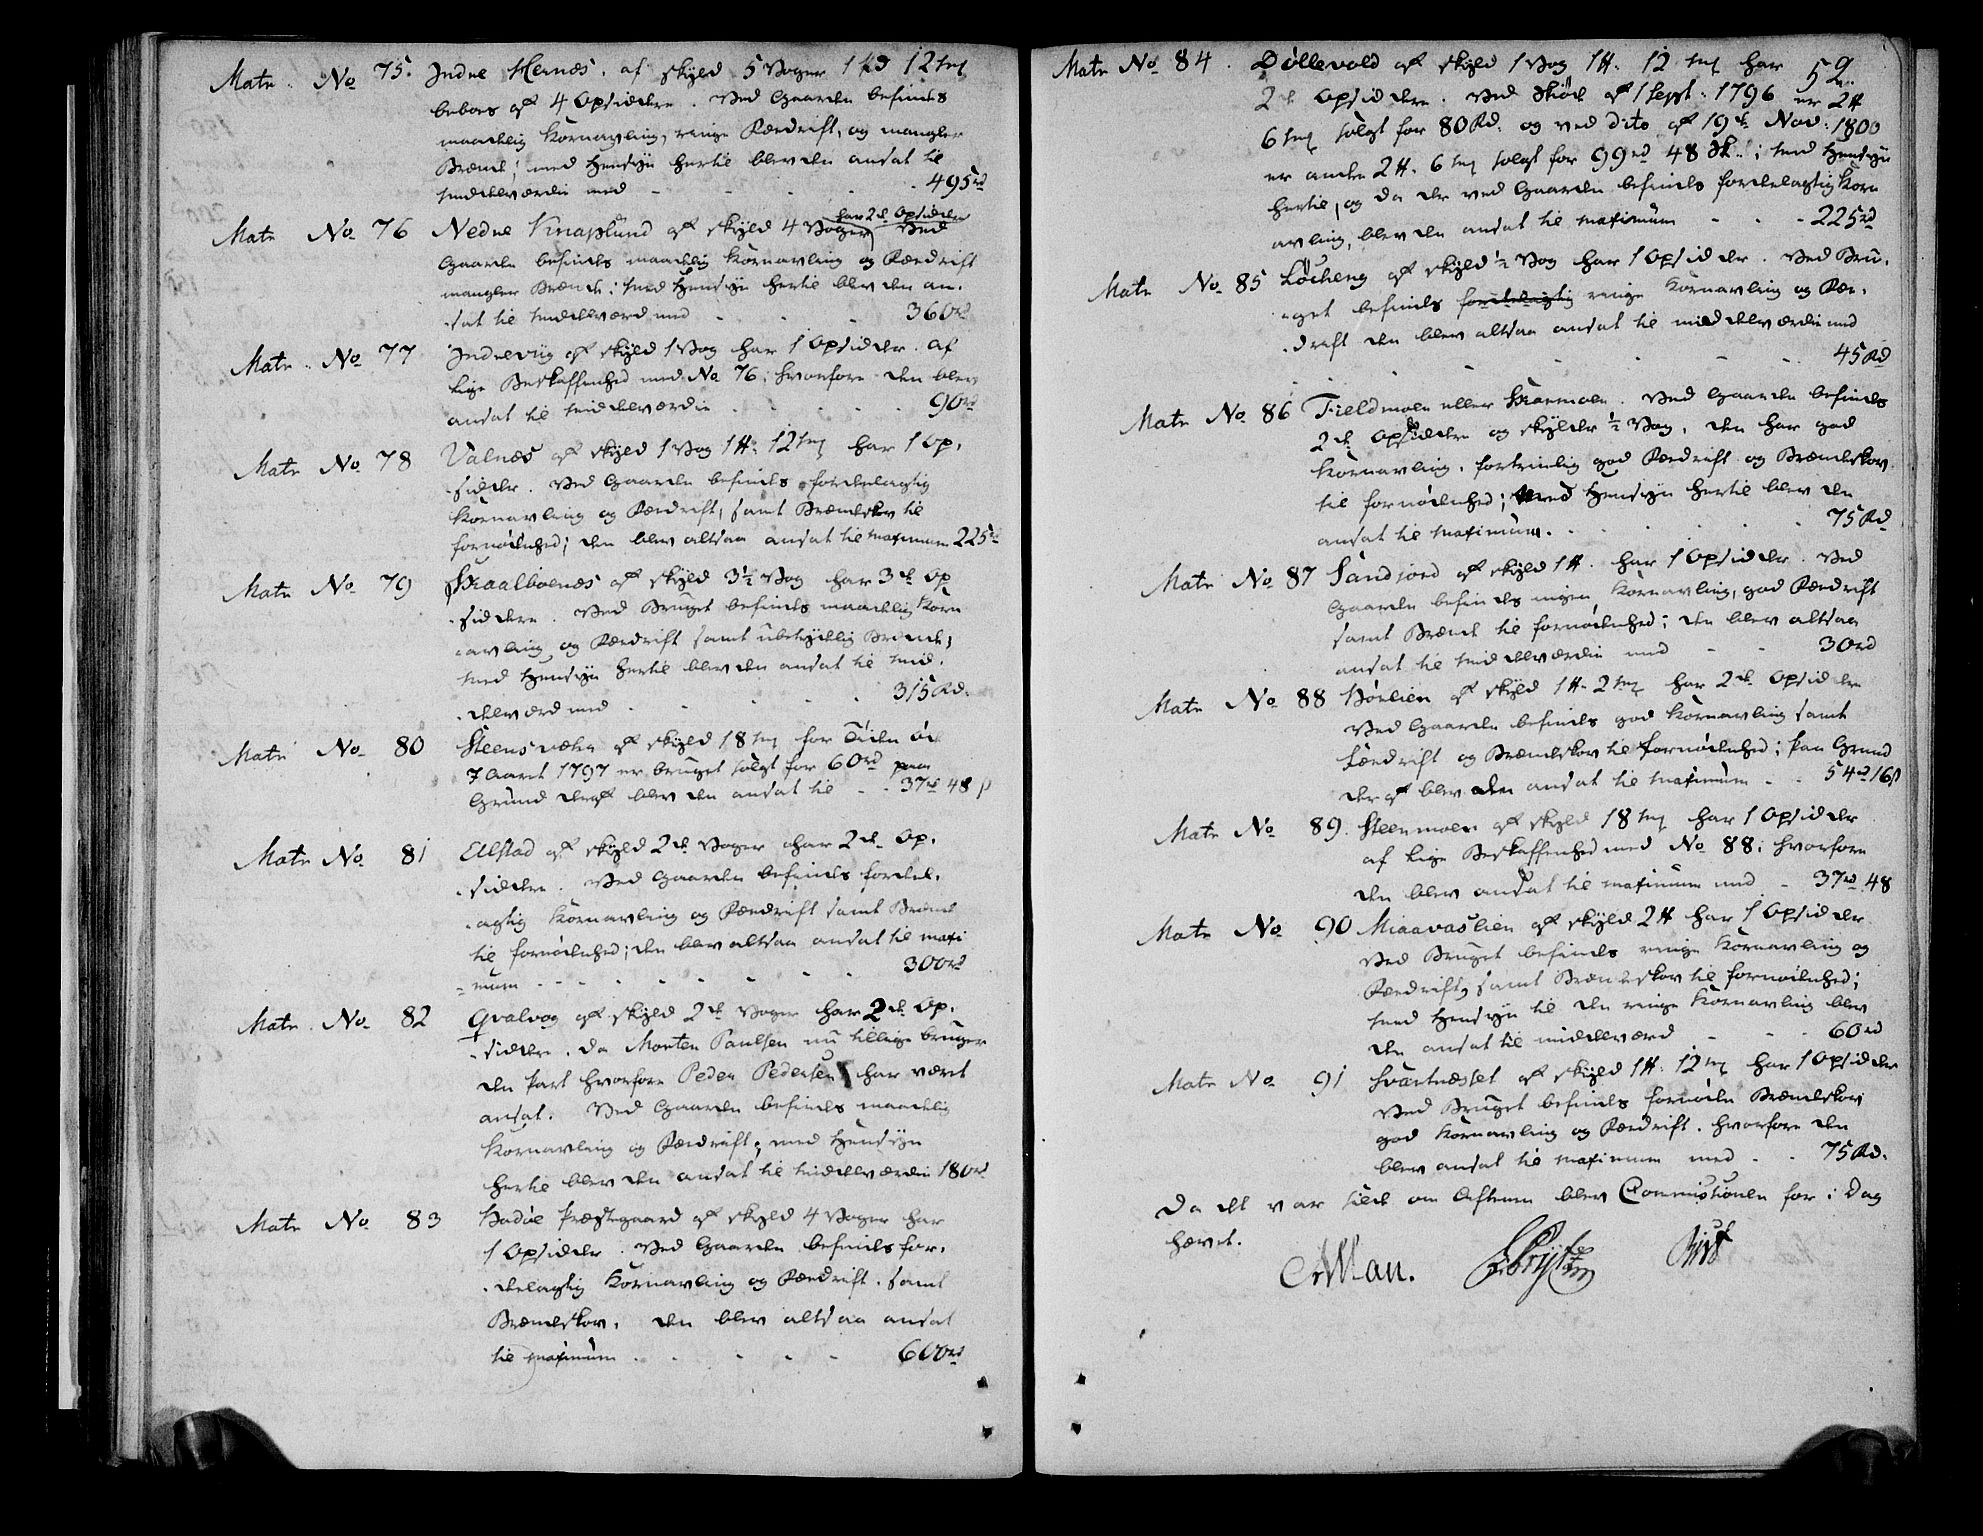 Matr. No 75. Indre Hernæs. af Skyld 5 Voger 1 Pd 12 mk
beboes af 4 Opsiddere. Ved Gaarden befindes
maadelig Kornavling, ringe Fædrift, og mangler
Brænde; med Hensyn hertil blev den ansat til
middelværdie med - - - - 495rd
Matr No 76 Nedre Knaplund af Skyld 4 Voger, har 2de Opsiddere Ved
Gaarden befindes maadelig Kornavling og Fædrift
mangler Brænde; med Hensyn hertil blev den an-
-sat til middelværd med - - - 360rd
Matr. No. 77 Indrevig af Skyld 1 Vog har 1 Opsidder. af
lige Beskaffenhed med No 76; hvorfore den blev
ansat til middelværdie - - - - 90rd
Matr No. 78 Valnæs af Skyld 1 Vog 1 ℔. 12 mk har 1 Op-
-sidder. Ved Gaarden befindes fordeelagtig
Kornavling og Fædrift, samt Brændeskov til
fornødenhed; den blev altsaa ansat til maximum 225rd
Matr No. 79 Skaalboenæs af Skyld 3½ Vog har 3de Op
-siddere. Ved Bruget befindes maadelig Korn
-avling og Fædrift samt ubetydelig Brænde;
med Hensyn hertil blev den ansat til mid-
-delværd med - - - - 315 Rd.
Matr No. 80 Steensværn af Skyld 18 mk for Tiden øde
I Aaret 1797 er bruget solgt for 60rd paa
Grund deraf blev den ansat til - - 37rd 48 s
Matr No. 81 Ellstad af Skyld 2de Voger har 2de Op-
-siddere. Ved Gaarden befindes fordel-
-agtig Kornavling og Fædrift samt Brænde
til fornødenhed; den blev altsaa ansat til maxi
-mum - - - - - - 300rd
Matr. No. 82 Qvalvog af Skyld 2de Voger har 2de Op-
-siddere. da Morten Paulsen nu tillige bruger
den Part hvorfore Peder Pedersen har været
ansat. Ved Gaarden befindes maadelig
Kornavling og Fædrift; med Hensyn
hertil blev den ansat til middelværdie 180rd
Matr No. 83 Bodøe Præstegaard af Skyld 4 Voger har
1 Opsidder. Ved Gaarden befindes for-
-delagtig Kornavling og Fædrift. samt
Brændeskov. den blev altsaa ansat
til maximum - - - - 600rd
52
Matr No. 84. Døllevold af Skyld 1 Vog 1 ℔. 12 mk har
2de Opsiddere. Ved Skiøde af 1 Sept. 1796 er 2 ℔
6 mk solgt for 80 Rd. og ved dito af 19de Nov: 1800
er andre 2 ℔. 6 mk solgt for 99rd 48 sk.; med Hensyn
hertil, og da der ved Gaarden befindes fordelagtig Korn
avling, blev den ansat til maximum - - - 225rd
Matr No. 85 Løcheng af Skyld ½ Vog har 1 Opsidder. Ved Bru-
-get befindes fordelagtig ringe Kornavling og Fæ-
-drift den blev altsaa ansat til middelværdie med
- - - - 45 Rd
Matr No. 86 Fieldmoen eller Skarmoen. Ved Gaarden befindes
2de Opsiddere og skylder ½ Vog. den har god
Kornavling, fortrinlig god Fædrift og Brændeskov
til fornødenhed; Med Hensyn hertil blev den
ansat til maximum. - - - - 75 Rd
Matr No. 87 Sandjord af Skyld 1 ℔. har 1 Opsidder. Ved
Gaarden befindes ingen Kornavling, god Fædrift
samt Brænde til fornødenhed; den blev altsaa
ansat til middelværdie med - - 30rd
Matr No 88 Børlien af Skyld 1 ℔. 2 mk har 2de Opsiddere
Ved Gaarden befindes god Kornavling samt
Fædrift og Brændeskov til fornødenhed; paa Grund
der af blev den ansat til maximum - - 54rd 16 s
Matr No 89. Steenmoen af Skyld 18 mk har 1 Opsidder
af lige Beskaffenhed med No 88; hvorfore
den blev ansat til maximum med - 37rd 48
Matr No. 90 Miaavaslien af Skyld 2 ℔ har 1 Opsidder
Ved Bruget befindes ringe Kornavling og
Fædrift, samt Brændeskov til fornødenhed;
med Hensyn til den ringe Kornavling blev
den ansat til middelværd - - - 60rd
Matr No. 91 Svartnæsset af Skyld 1 ℔. 12 mk har 1 Opsidder
Ved Bruget befindes fornøden Brændeskov
god Kornavling og Fædrift. hvorfore den
blev ansat til maximum med - - 75 Rd.
Da det var silde om Aftenen blev Commissionen for i Dag
hævet.